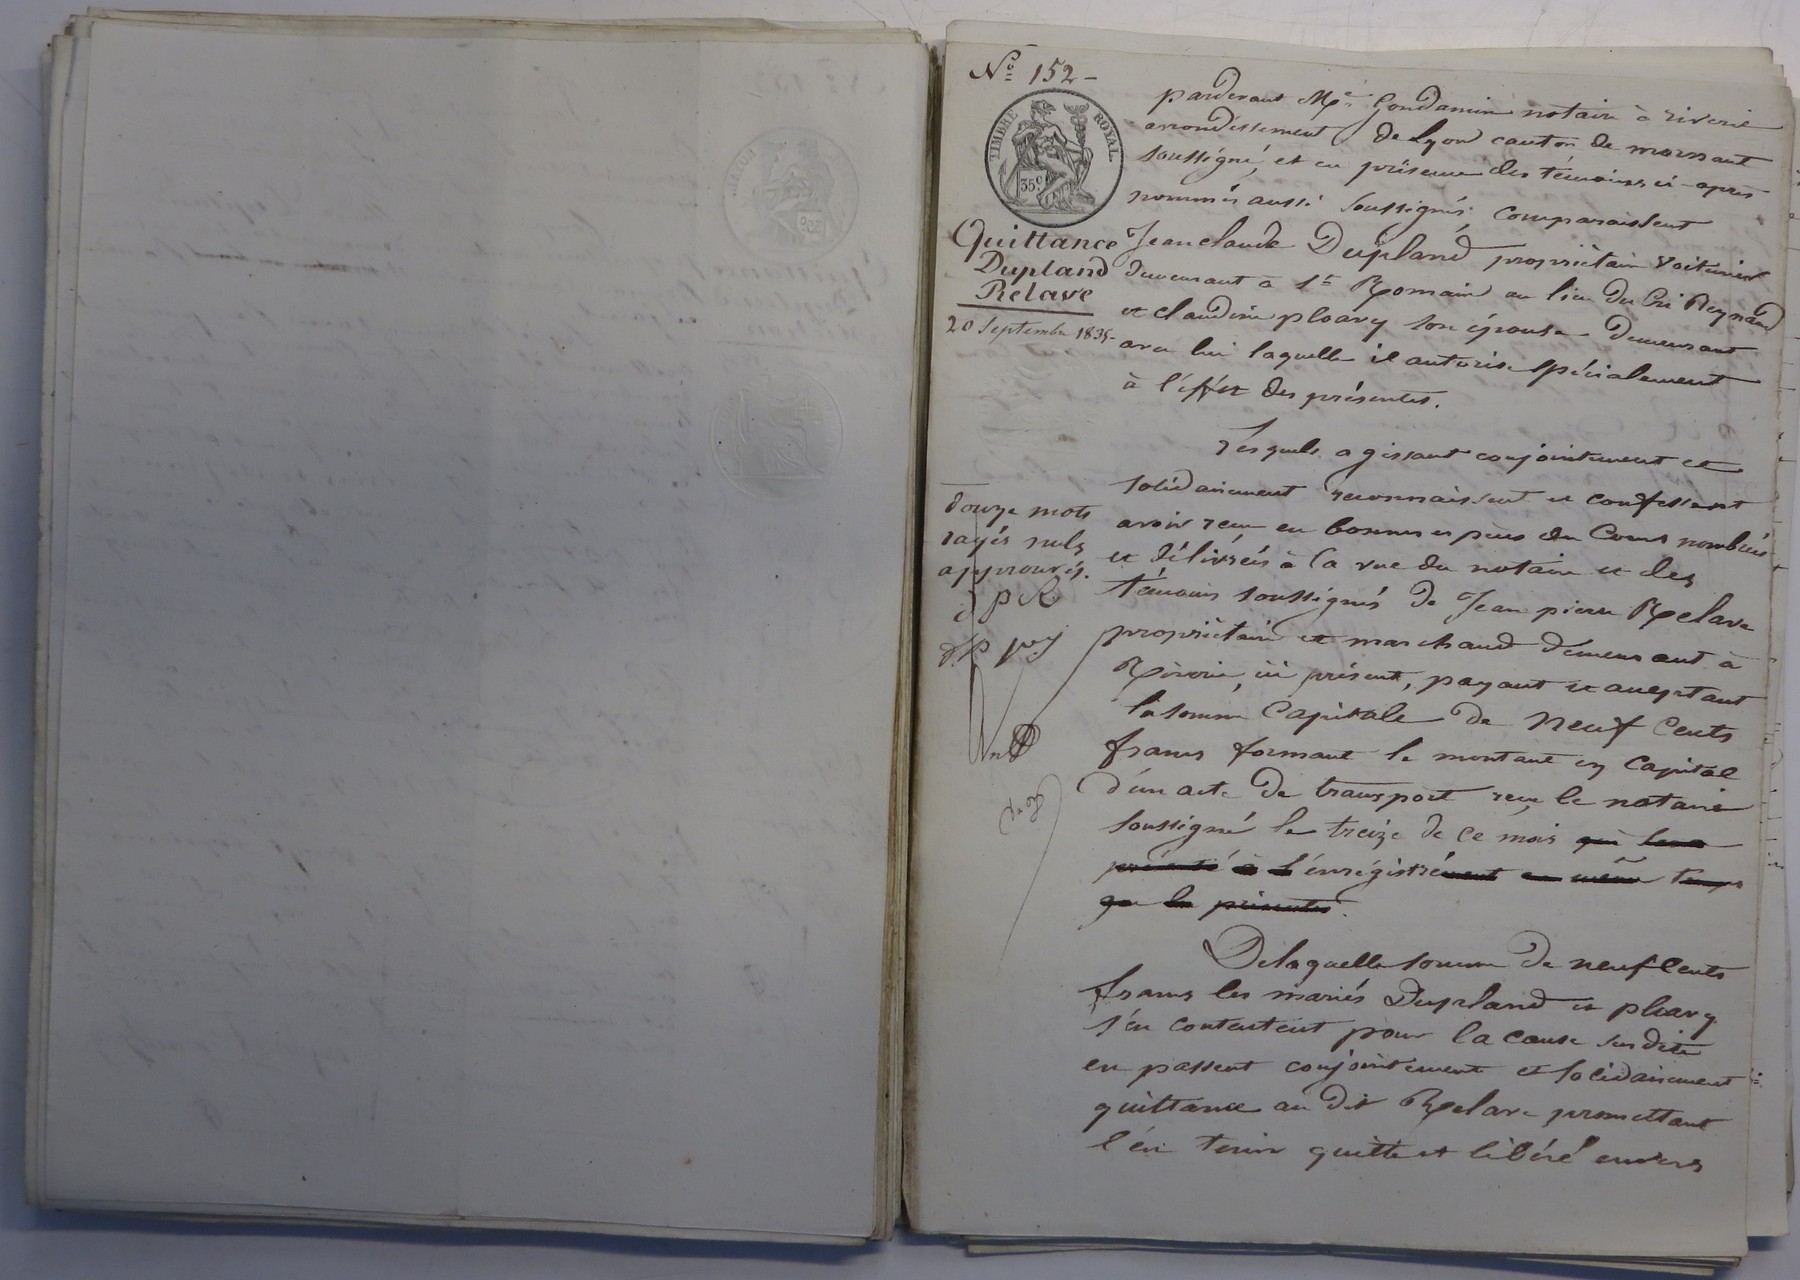 N° 152 -
TIMBRE ROYAL
35 c
Quittance
Dupland
Relave
20 Septembre 1835-
pardevant Me Gondamin notaire à riverie
arrondissement de Lyon canton de mornant
soussigné, et en présence des témoins ci-après
nommés aussi soussignés, comparaissent
Jean claude Dupland propriétaire voiturier
demeurant à St Romain au lieu du Cri Reynaud
et claudine ploavy son épouse demeurant
avec lui laquelle il autorise spécialement
à l'effet des présentes.
Lesquels agissant conjointement et
solidairement reconnaissent et confessent
avoir reçu en bonnes espèces du Cours nombrées
et délivrées à la vue du notaire et des
témoins soussignés de Jean pierre Relave
propriétaire et marchand demeurant à
Riverie, ici présent, payant et acceptant
la somme Capitale de neuf Cents
francs formant le montant en Capital
d'un acte de transport reçu le notaire
soussigné le treize de ce mois qui sera
présenté à l'énrégistrément en même temps
que les présentes.
Delaquelle somme de neuf Cents
francs les mariés Dupland et ploavy
s'en contentent pour la cause susdite
en passent conjointement et solidairement
quittance au dit Relave promettant
l'en tenir quitte et libéré envers
douze mots
rayés nuls
approuvés.
J p R.